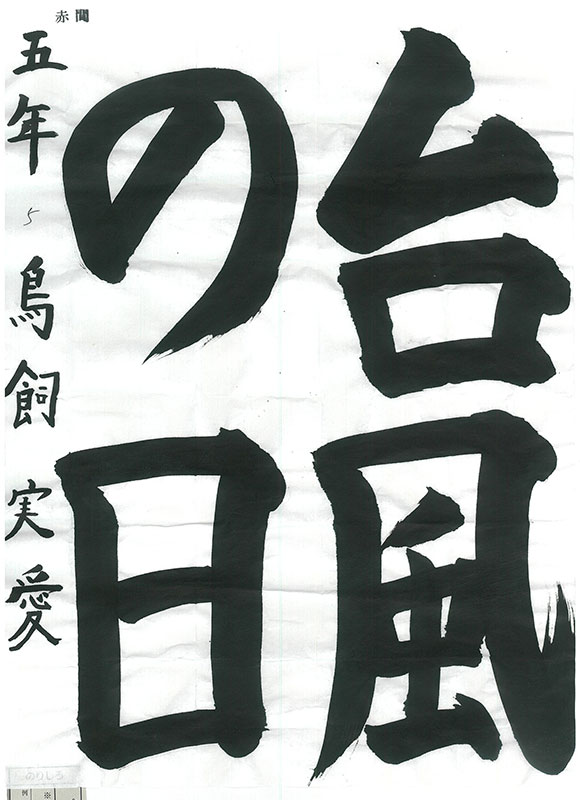 台風
の日
五年 5 鳥飼 実愛
赤間
のりしろ
例
※